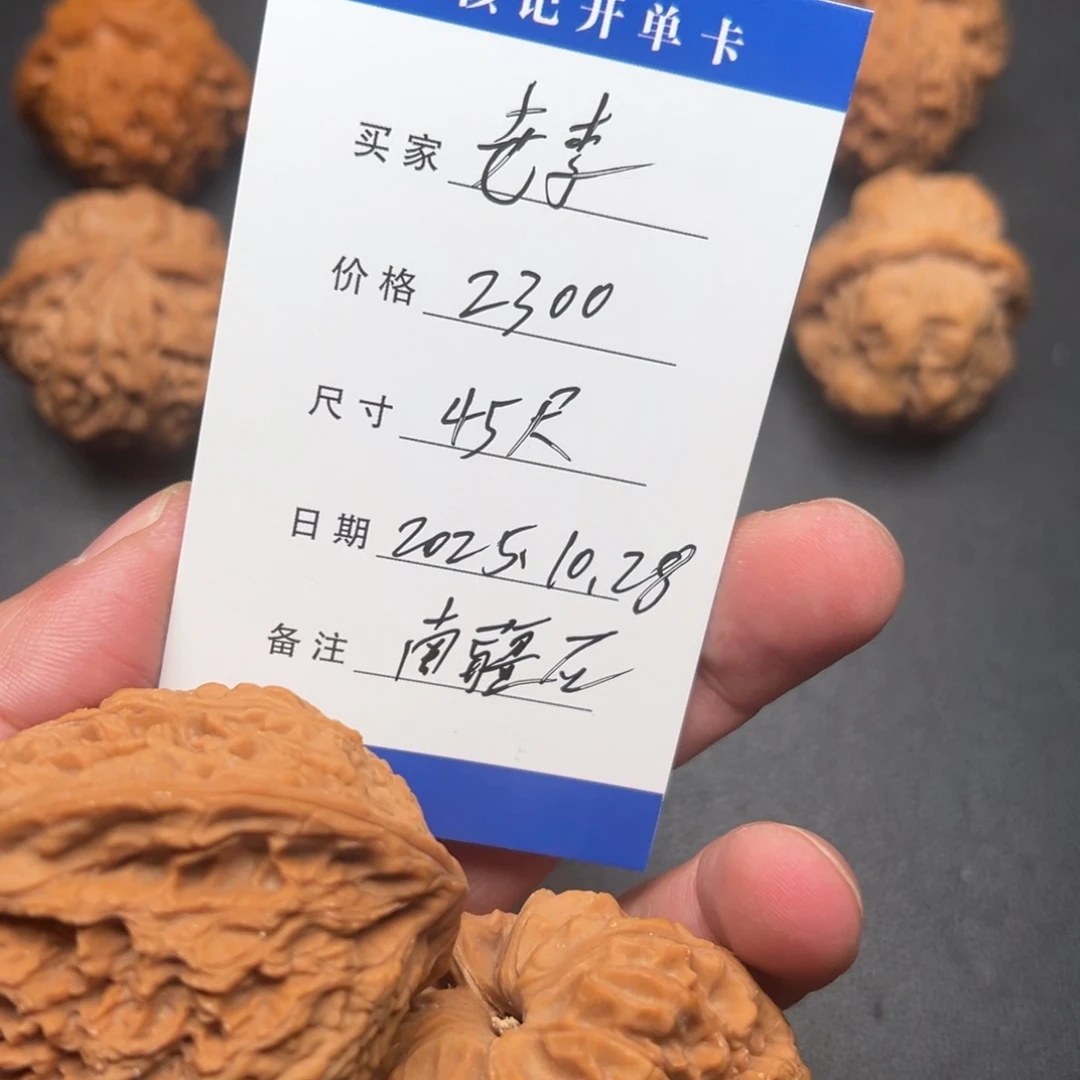 记开单卡
买家 老李
价格 2300
尺寸 45尺
日期 2025.10.28
备注 南疆石